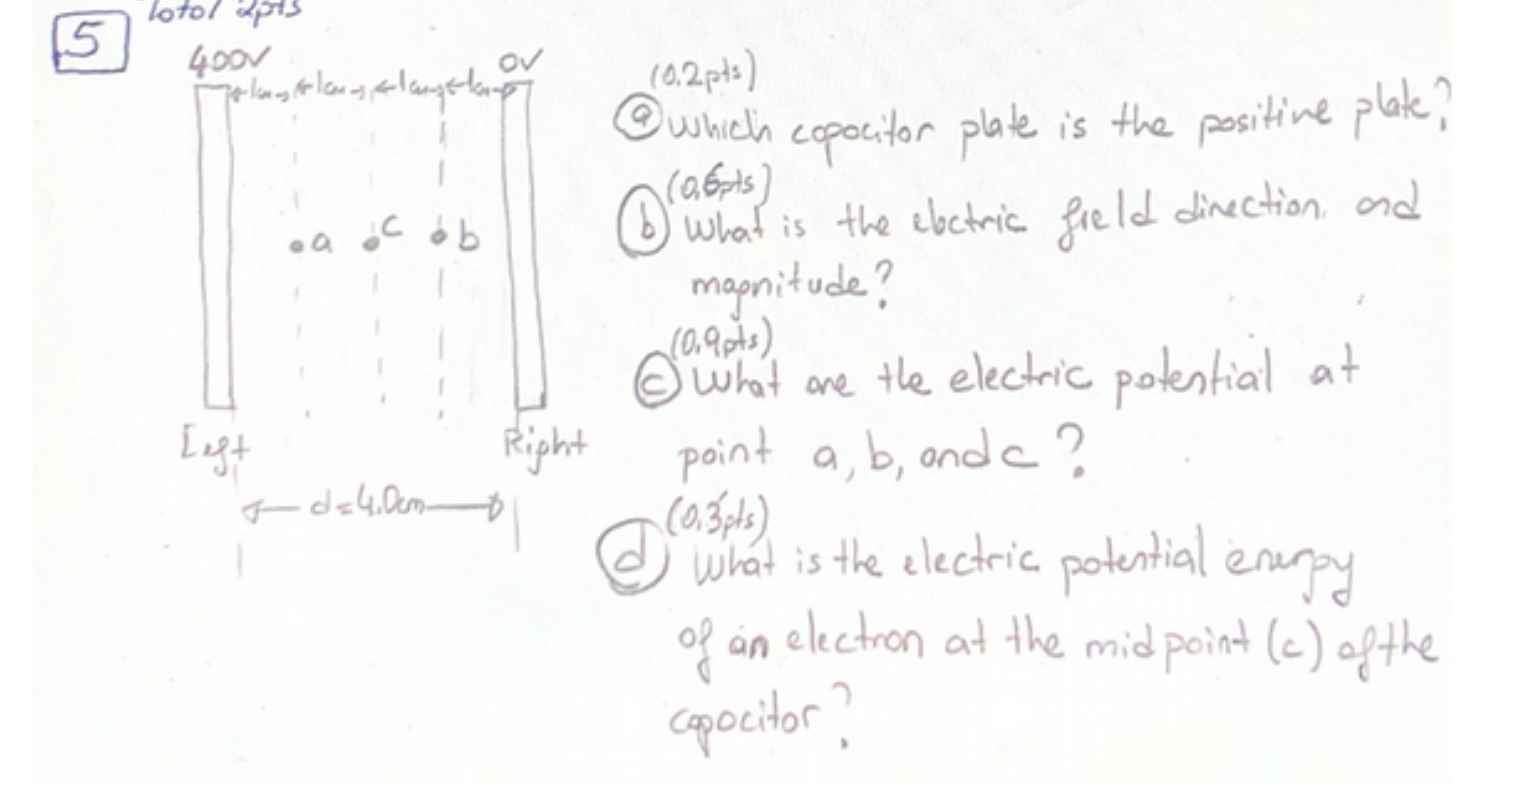 Total 2pts
5
400V
0V
←1cm→ ←1cm→ ←1cm→ ←1cm→
a
c
b
Left
Right
d=4.0cm
(0.2pts)
(a) Which capacitor plate is the positive plate?
(0,6pts)
(b) What is the electric field direction and
magnitude?
(0,9pts)
(c) What are the electric potential at
point a, b, and c?
(0,3pts)
(d) What is the electric potential energy
of an electron at the midpoint (c) of the
capacitor?